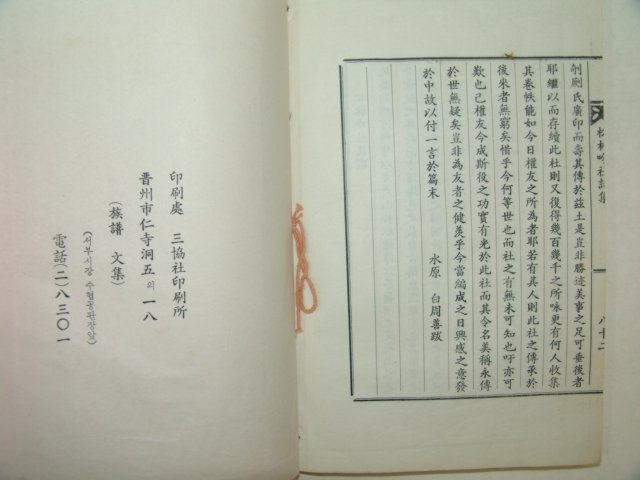 剞劂氏廣印而壽其傳於茲土是豈非勝迹美事之足可垂後者
耶繼以而存續此社則又後得幾百幾千之所咏更有何人收集
其卷帙能如今日權友之所為者耶若有其人則此社之傳承於
後來者無窮矣惜乎今何等世也而社之有無未可知也吁亦可
歎也已權友今成斯役之功實有光於此社而其令名美稱永傳
於世無疑矣豈非為友者之健羨乎今當編成之日興感之意發
於中故以付一言於篇末
水原 白周善跋
吟社詩集
八十二
印刷處 三協社印刷所
晋州市仁寺洞五의一八
(族譜 文集)
(서부시장 수협공판장앞)
電話(二)八三〇一